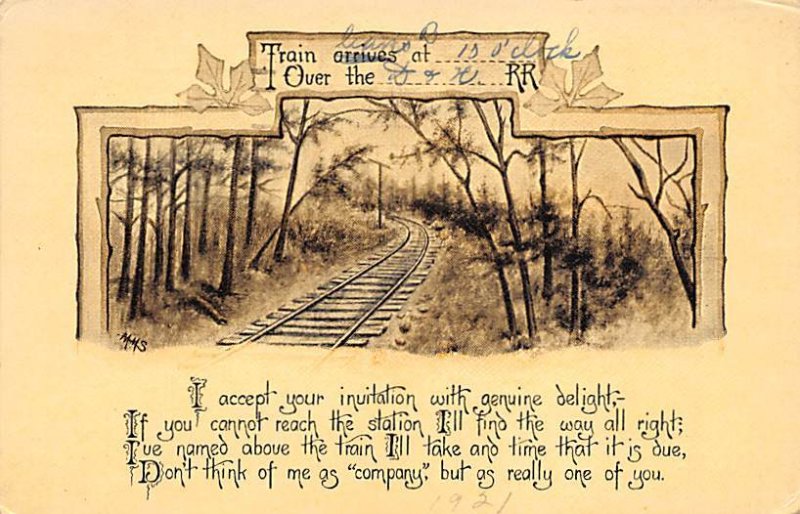 leaves B
Train arrives at 10 o'clock
Over the D & H. RR
MMS
I accept your invitation with genuine delight,-
If you cannot reach the station I'll find the way all right;
I've named above the train I'll take and time that it is due,
Don't think of me as "company", but as really one of you.
1921